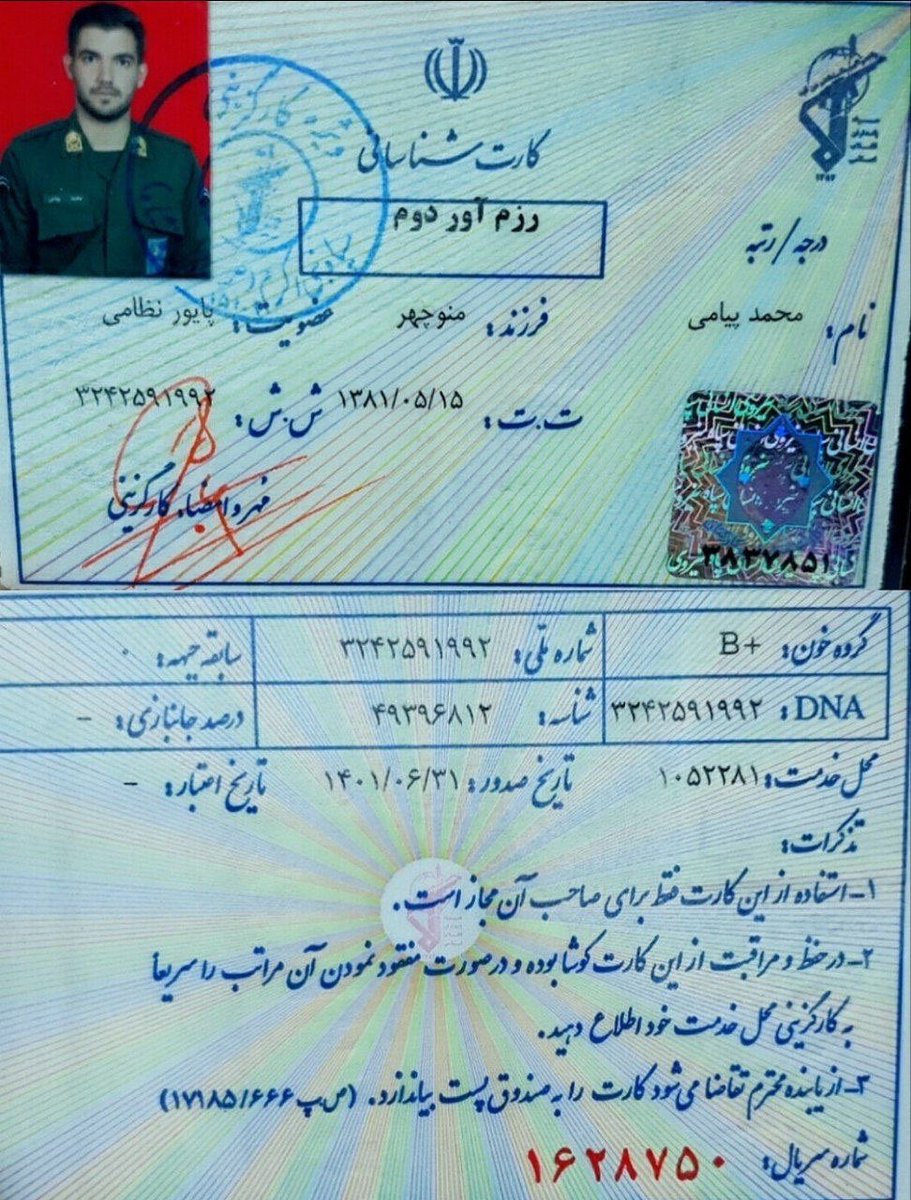 کارت شناسائی
درجه/رتبه
رزم آور دوم
نام: محمد پیامی فرزند: منوچهر عضویت: پایور نظامی
ت.ت: ۱۳۸۱/۰۵/۱۵ ش.ش: ۳۲۴۲۵۹۱۹۹۲
مهر و امضاء کارگزینی
۳۸۳۷۸۵۱
گروه خون: B+ شماره ملی: ۳۲۴۲۵۹۱۹۹۲ سابقه جبهه: ۰
DNA: ۳۲۴۲۵۹۱۹۹۲ شناسه: ۴۹۳۹۶۸۱۲ درصد جانبازی: -
محل خدمت: ۱۰۵۲۲۸۱ تاریخ صدور: ۱۴۰۱/۰۶/۳۱ تاریخ اعتبار: -
تذکرات:
۱- استفاده از این کارت فقط برای صاحب آن مجاز است.
۲- در حفظ و مراقبت از این کارت کوشا بوده و در صورت مفقود نمودن آن مراتب را سریعاً
به کارگزینی محل خدمت خود اطلاع دهید.
۳- از یابنده محترم تقاضا می‌شود کارت را به صندوق پست بیاندازد. (ص پ ۱۷۱۸۵/۶۶۶)
شماره سریال: ۱۶۲۸۷۵۰